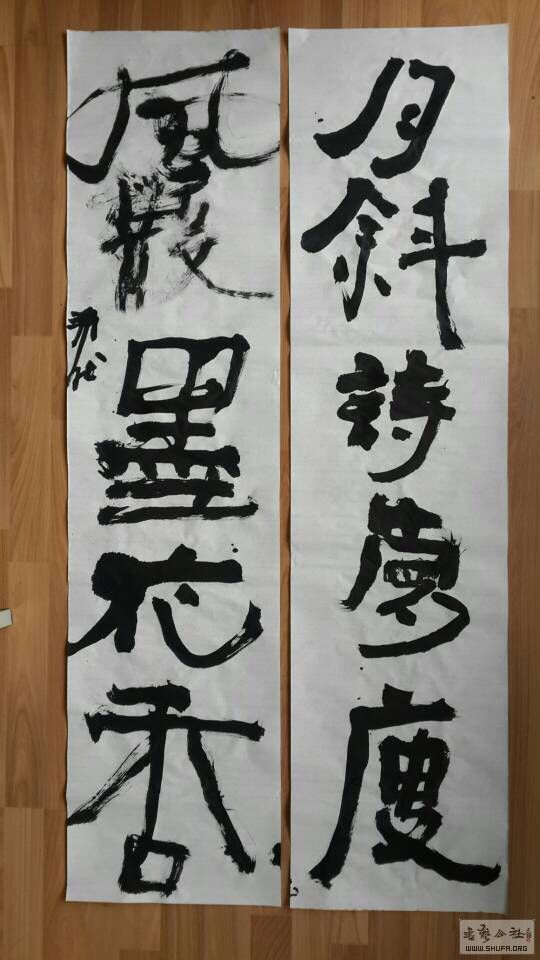 月斜詩夢瘦
風散墨花香
書藝公社
WWW.SHUFA.ORG